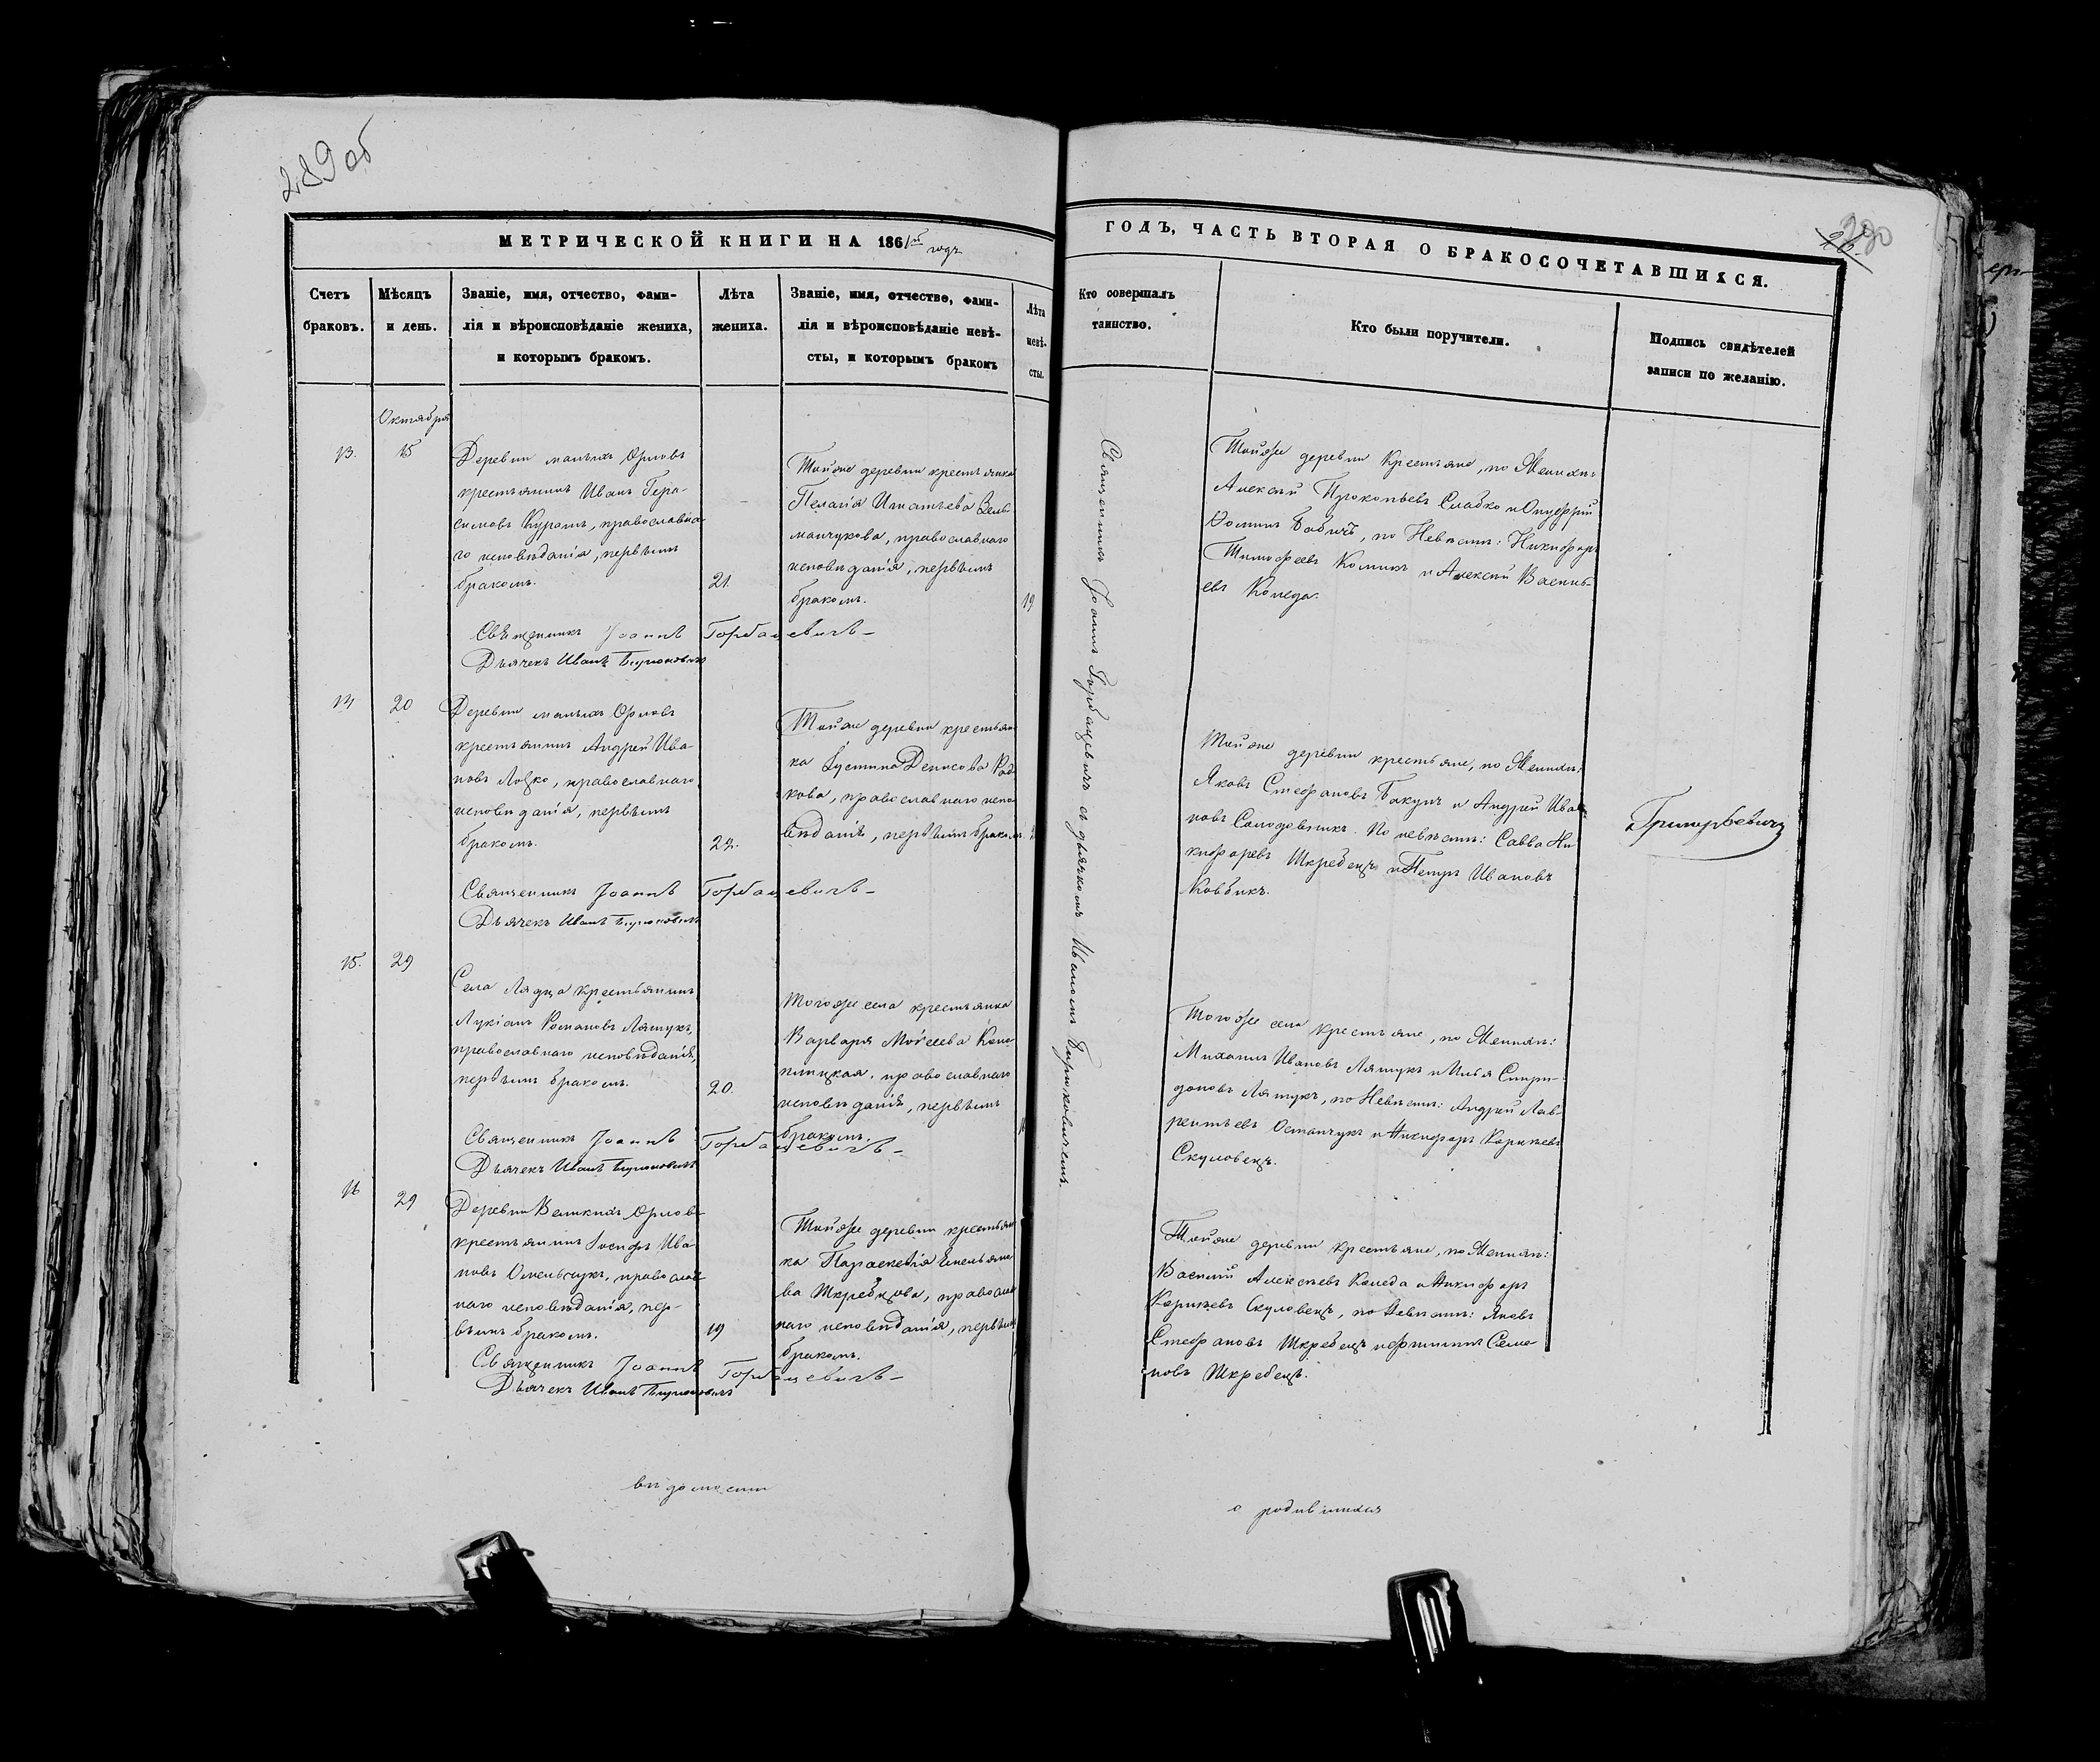 289 об
290
МЕТРИЧЕСКОЙ КНИГИ НА 1861й годъ
ГОДЪ, ЧАСТЬ ВТОРАЯ О БРАКОСОЧЕТАВШИХСЯ.
Счетъ
браковъ.
Мѣсяцъ
и день.
Званіе, имя, отчество, фами-
лія и вѣроисповѣданіе жениха,
и которымъ бракомъ.
Лѣта
жениха.
Званіе, имя, отчество, фами-
лія и вѣроисповѣданіе невѣ-
сты, и которымъ бракомъ
Лѣта
невѣ-
сты.
Кто совершалъ
таинство.
Кто были поручители.
Подпись свидѣтелей
записи по желанію.
Октября
13. 15
Деревни малыхъ Орловъ
крестьянинъ Иванъ Гера-
симовъ Курашъ, православна-
го исповѣданія, первымъ
бракомъ.
21
Тойже деревни крестьянка
Пелагія Игнатьева Вель-
манчукова, православнаго
исповѣданія, первымъ
бракомъ.
19
Тойже деревни крестьяне, по Женихѣ:
Алексѣй Прокопьевъ Сладко и Онуфрій
Ѳоминъ Бабичъ, по Невѣстѣ: Никифоръ
Тимофеевъ Комикъ и Алексѣй Василь-
евъ Коледа.
Священникъ Іоаннъ Горбацевичъ
Дьячекъ Иванъ Бирюковичъ
14 20
Деревни малыхъ Орловъ
крестьянинъ Андрей Ива-
новъ Лоѣко, православнаго
исповѣданія, первымъ
бракомъ.
22.
Тойже деревни крестьян-
ка Іустина Денисова Рад-
кова, православнаго испо-
вѣданія, первымъ бракомъ.
Тойже деревни крестьяне, по Женихѣ:
Яковъ Стефановъ Бакунъ и Андрей Ива-
новъ Солодовникъ. По невѣстѣ: Савва Ни-
кифоревъ Шкребецъ и Петръ Ивановъ
Ковбикъ.
Григорьевичъ
Священникъ Іоаннъ Горбацевичъ
Дьячекъ Иванъ Бирюковичъ
15. 29
Села Лядца крестьянинъ
Лукіанъ Романовъ Ляшукъ,
православнаго исповѣданія,
первымъ бракомъ.
20.
Тогоже села крестьянка
Варвара Моѵсеева Коно-
плицкая, православнаго
исповѣданія, первымъ
бракомъ.
Тогоже села крестьяне, по Женихѣ:
Михаилъ Ивановъ Ляшукъ и Илья Спири-
доновъ Ляшукъ, по Невѣстѣ: Андрей Лав-
рентьевъ Остапчукъ и Никифоръ Карпѣевъ
Скуловецъ.
Священникъ Іоаннъ Горбацевичъ
Дьячекъ Иванъ Бирюковичъ
16 29
Деревни Великихъ Орловъ
крестьянинъ Іосифъ Ива-
новъ Омельчукъ, православ-
наго исповѣданія, пер-
вымъ бракомъ.
19
Тойже деревни крестьян-
ка Параскевія Емельяно-
ва Шкребцова, православ-
наго исповѣданія, первымъ
бракомъ.
Тойже деревни крестьяне, по Женихѣ:
Василій Алексѣевъ Коледа и Никифоръ
Карпѣевъ Скуловецъ, по Невѣстѣ: Яковъ
Стефановъ Шкребецъ и Филиппъ Семе-
новъ Шкребецъ.
Священникъ Іоаннъ Горбацевичъ
Дьячекъ Иванъ Бирюковичъ
Священникъ Іоаннъ Горбацевичъ съ дьячкомъ Иваномъ Бирюковичемъ.
вѣдомости
о родившихся